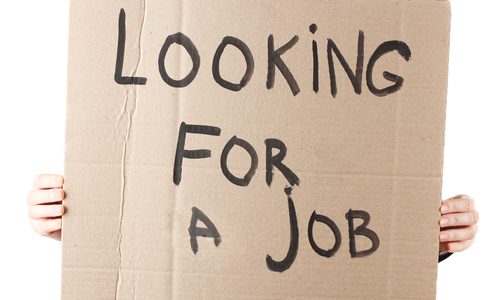 LOOKiNG
FOR
A JOB